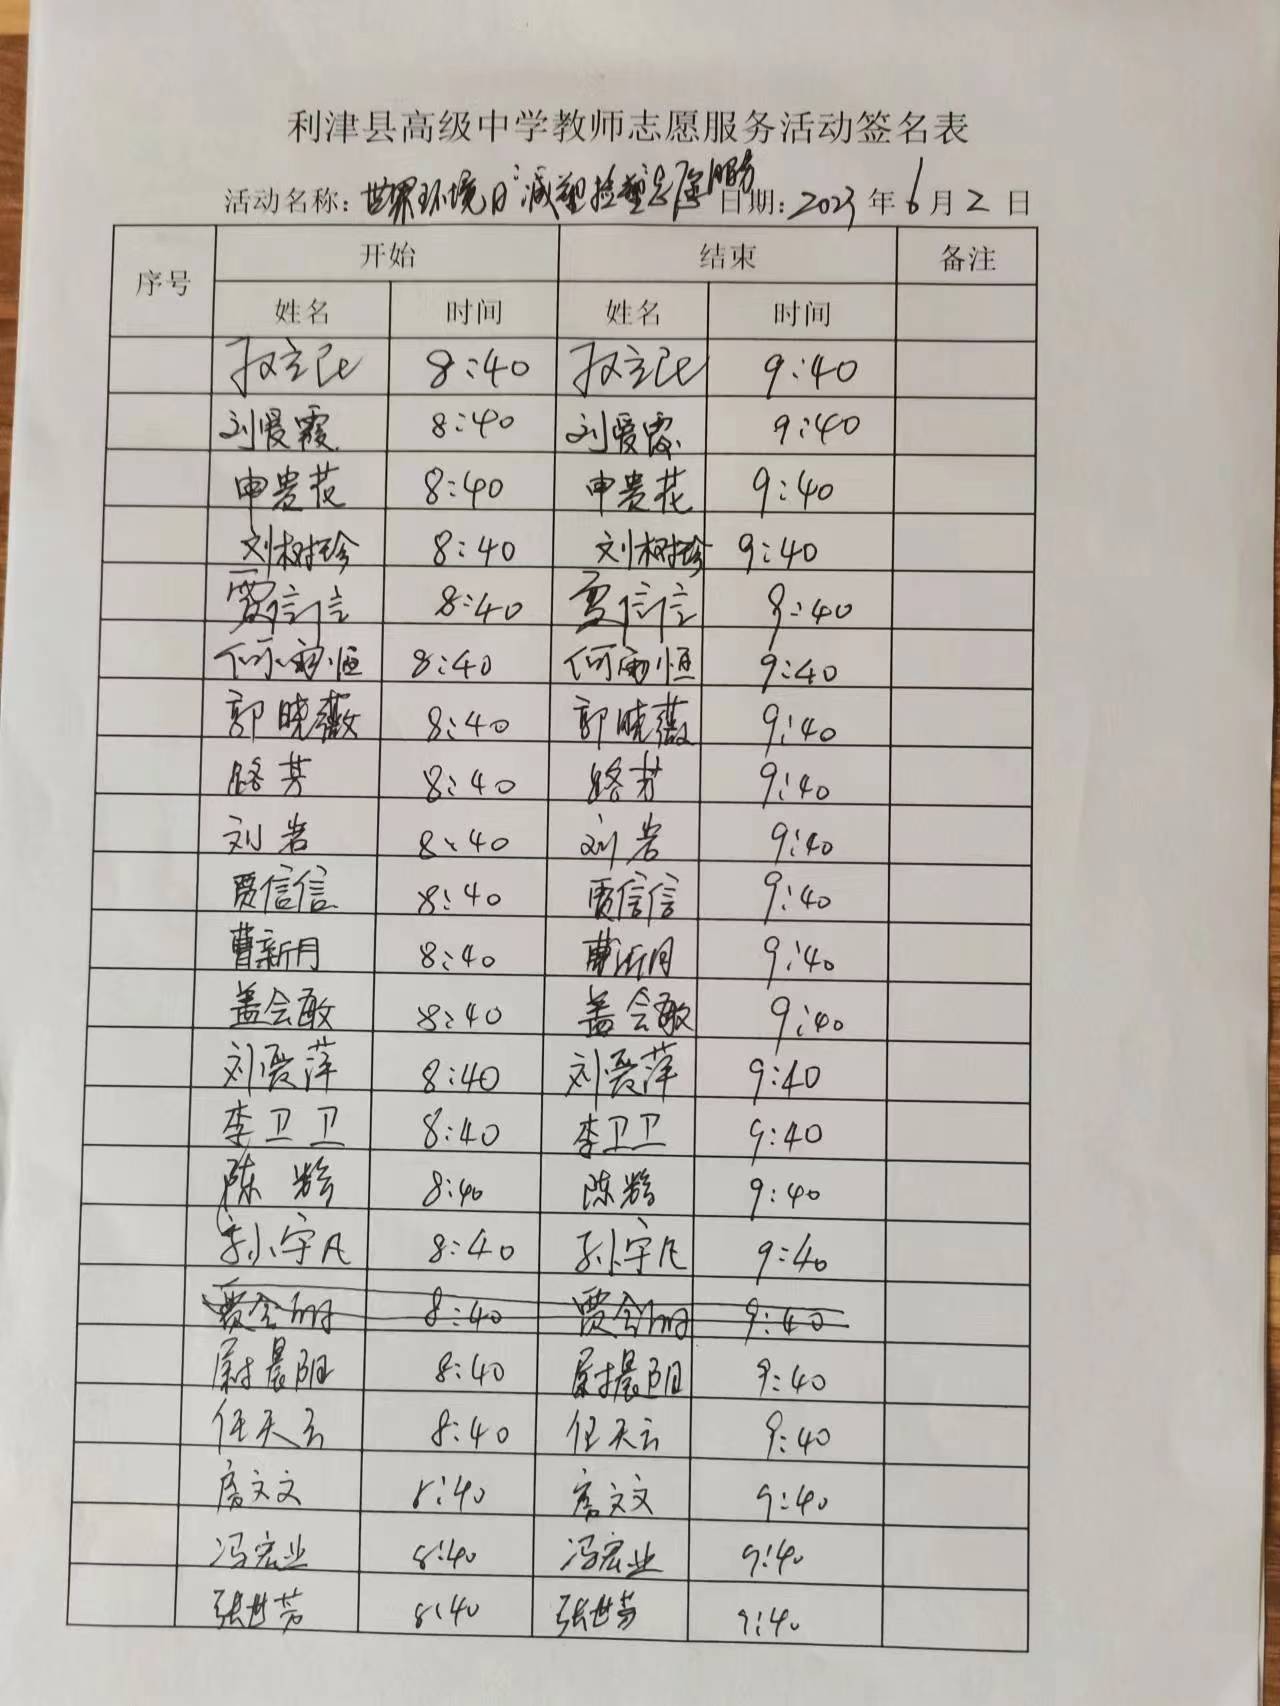 利津县高级中学教师志愿服务活动签名表
活动名称：世界环境日"减塑捡塑志愿服务 日期：2023 年 6 月 2 日
序号 开始 结束 备注
姓名 时间 姓名 时间
8:40 9:40
刘爱霞 8:40 刘爱霞 9:40
申贵花 8:40 申贵花 9:40
刘树珍 8:40 刘树珍 9:40
贾信信 8:40 贾信信 9:40
何雨恒 8:40 何雨恒 9:40
郭晓薇 8:40 郭晓薇 9:40
路芳 8:40 路芳 9:40
刘岩 8:40 刘岩 9:40
贾信信 8:40 贾信信 9:40
曹新月 8:40 曹新月 9:40
盖会敏 8:40 盖会敏 9:40
刘爱萍 8:40 刘爱萍 9:40
李卫卫 8:40 李卫卫 9:40
陈 8:40 陈 9:40
孙宇凡 8:40 孙宇凡 9:40
贾会 8:40 贾会 9:40
尉晨阳 8:40 尉晨阳 9:40
任天云 8:40 任天云 9:40
房文文 8:40 房文文 9:40
冯宏业 8:40 冯宏业 9:40
张世芳 8:40 张世芳 9:40